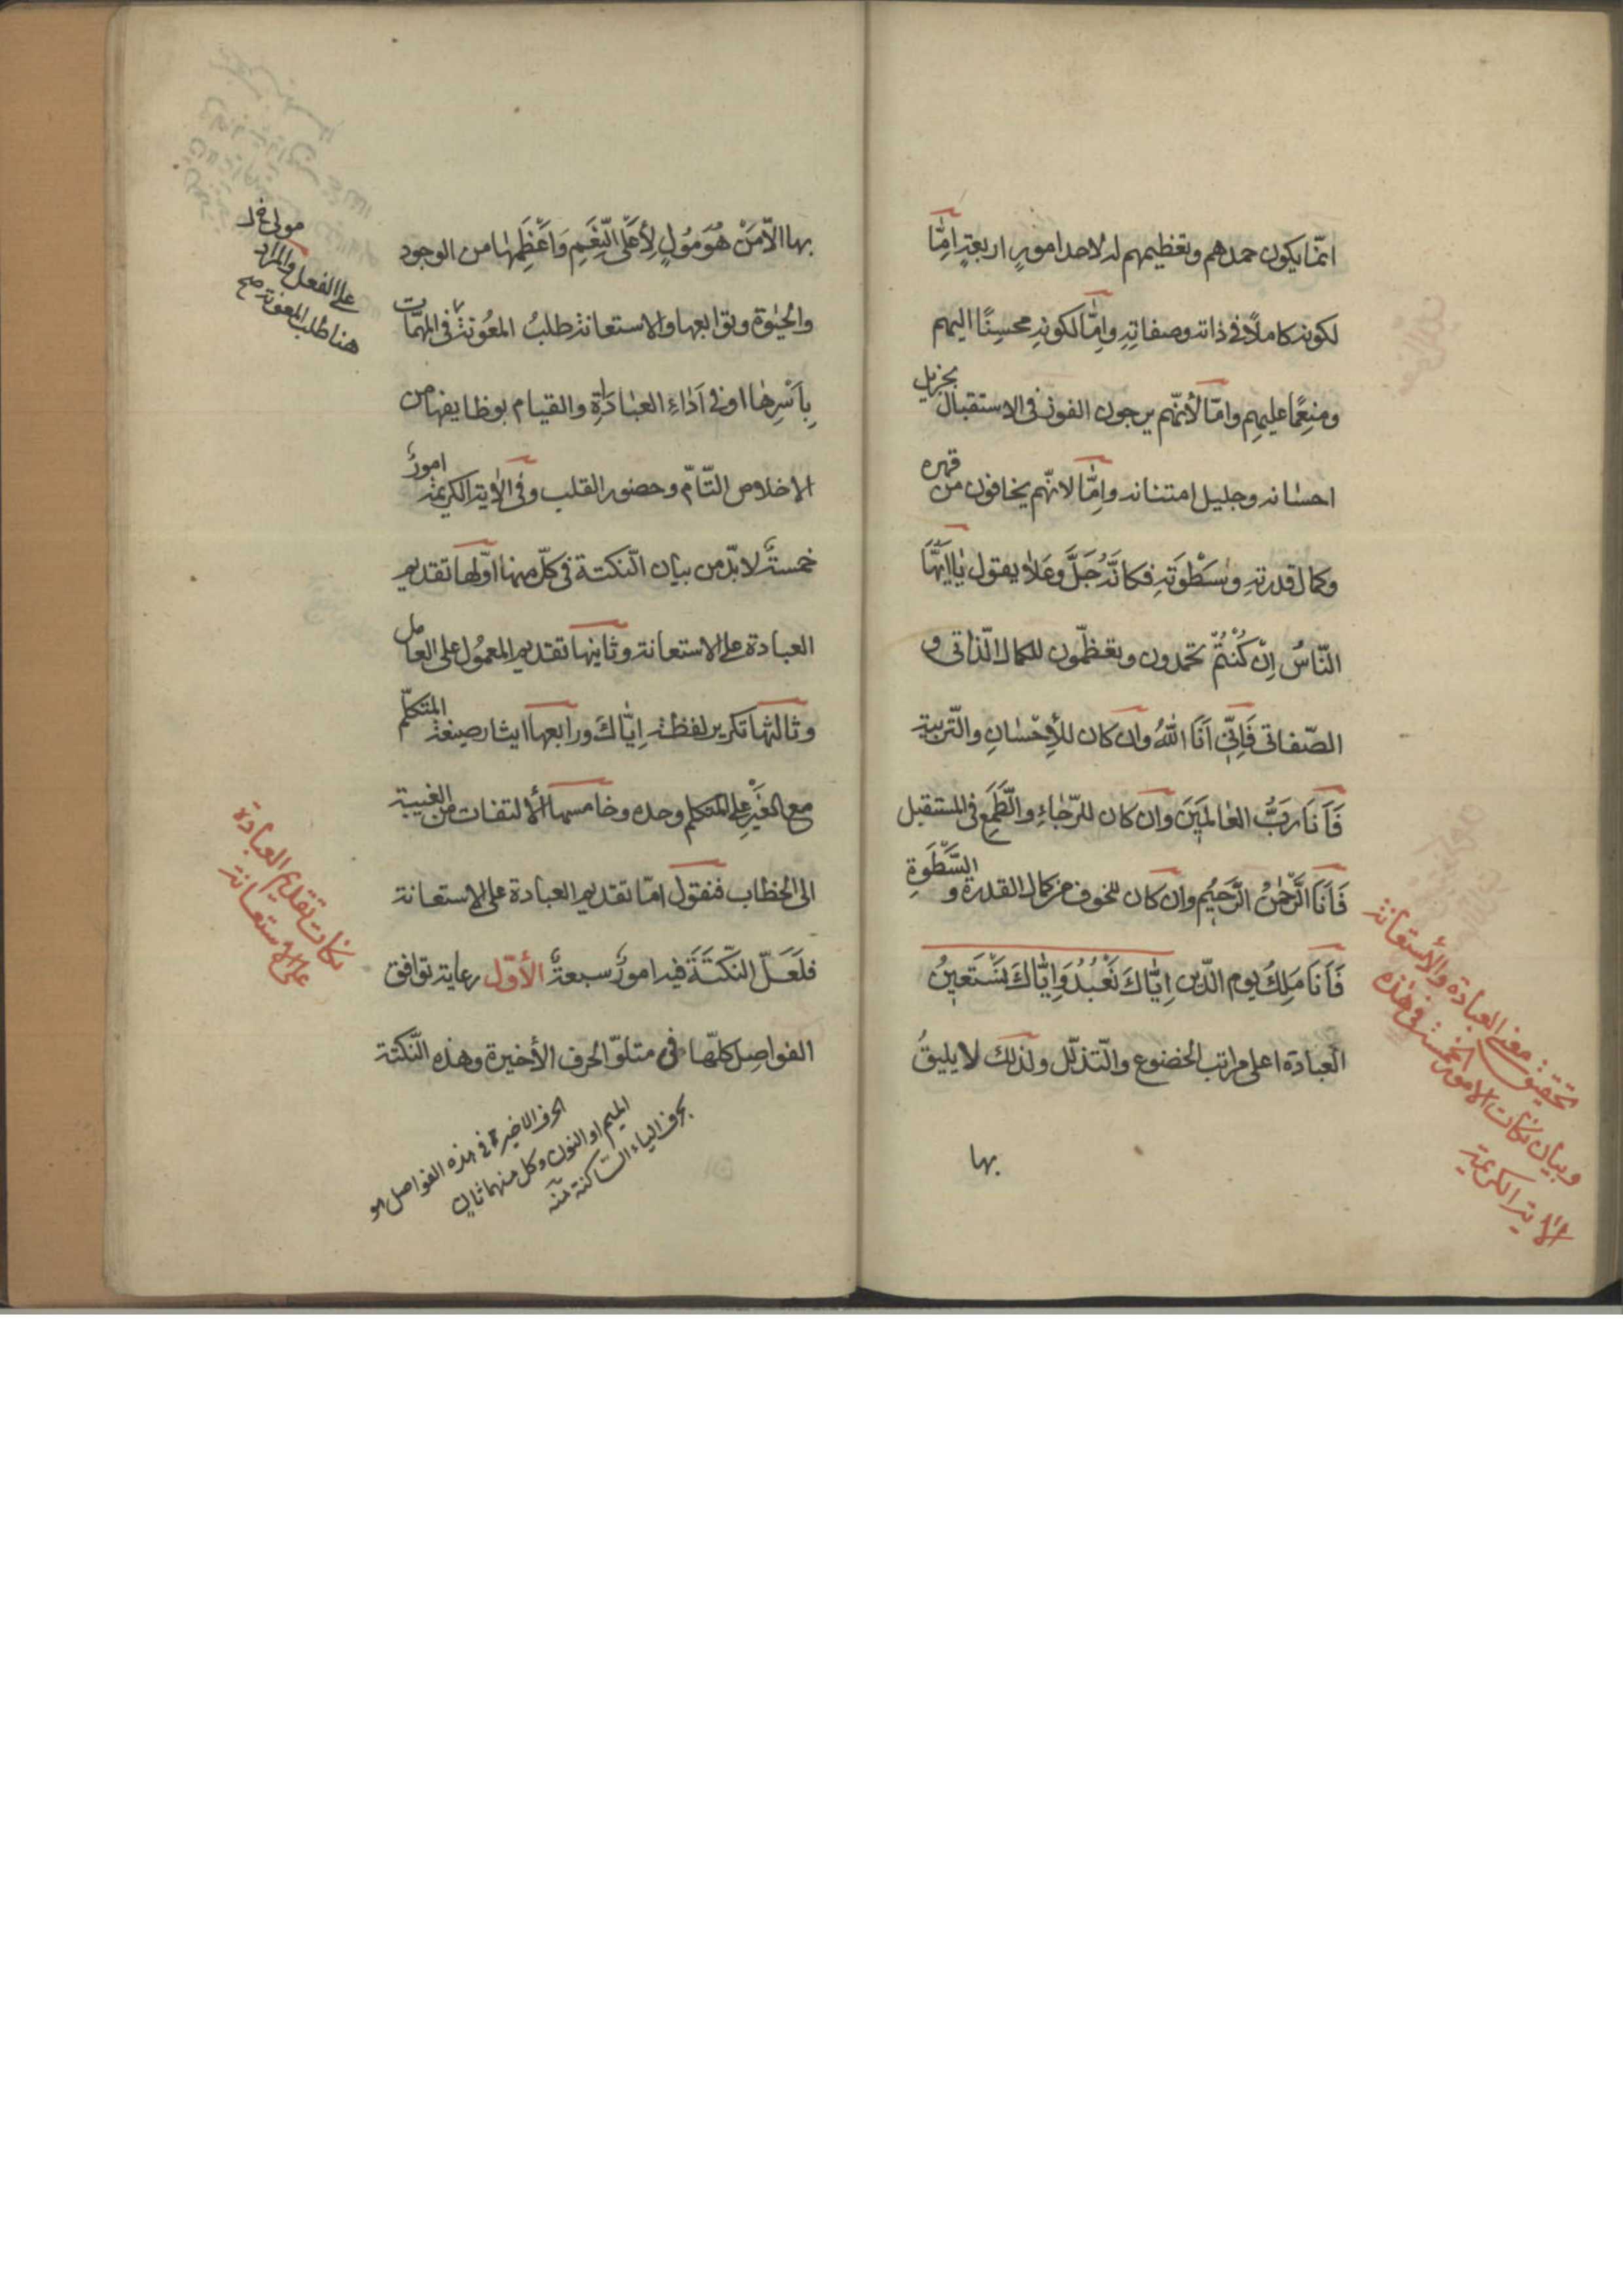 انّما يكون حمدهم وتعظيمهم له لاحد امورٍ اربعةٍ امّا
لكونه كاملًا فى ذاته وصفاتِهِ وامّا لكونهِ محسِنًا اليهم
ومنعِمًا عليهِم وامّا لأنّهم يرجون الفوز فى الاستقبال بجزيل
احسانه وجليل امتنانه وامّا لانّهم يخافون من قهره
وكمال قدرتهِ وسَطْوَتهِ فكانّهُ جَلَّ وعَلا يقول يٰا ايّهَا
النّاسُ اِنْ كُنْتُمْ تحمدون وتعظّمون للكمال الذّاتى و
الصّفاتى فَاِنّى اَنَا اللّٰهُ وان كان للأِحْسٰانِ والتّربيةِ
فَاَنَا رَبُّ العٰالمَينَ وان كان للرّجٰاءِ والطَّمَعِ فى المستقبل
فَاَنَا الرَّحْمٰنُ الرَّحيُم وان كان للخوف من كمال القدرة و السَّطْوَةِ
فَاَنَا مَلِكُ يوم الدّين اِيّٰاكَ نَعْبُدُ وَاِيّٰاكَ نَسْتَعينُ
العبادة اعلى مراتب الخضوع والتّذلّل ولذلك لا يليقُ
بها
تحقيق معنى العبادة والأستعانة
وبيان نكات الامور الخمسة فى هذه
الآية الكريمة
بها الاّ مَنْ هُوَ مُولٍ لِأعَلَى النِّعَمِ وَاَعْظَمِهٰا من الوجود
والحيٰوة وتوابعها والاستعانة طلبُ المعُونة فى المهمّات
بِاَسْرِهٰا او فى اَدٰاءِ العبٰادَاةِ والقيام بوظايفها من
الاخلاص التّامّ وحضور القلب وفى الأية الكريمة امورٌ
خمسةٌ لابدّ من بيان النّكتة فى كلّ منها اوّلها تقديم
العبادة على الاستعانة وثانيها تقديم المعمُول على العامل
وثالثها تكرير لفظة اِيّٰاكَ ورابعها ايثار صيغة المتكلّم
مع الغَيْرِ على المتكلم وحده وخامسها ألالتفات من الغيبة
الى الخطاب فنقول امّا تقديم العبادة على الاستعانة
فلَعَلّ النكتَةَ فيه امورٌ سبعةٌ الأوّل رعاية توافق
الفواصِل كلّها فى متلوّ الحرف الأخيرة وهذه النّكتة
على الفعل والمراد
هنا طلب المعونة صح
نكات تقديم العبادة
على الاستعانة
الحرف الاخيرة فى هذه الفواصل هو
الميم او النون وكل منهما تال
بحرف الياء الساكنة منه